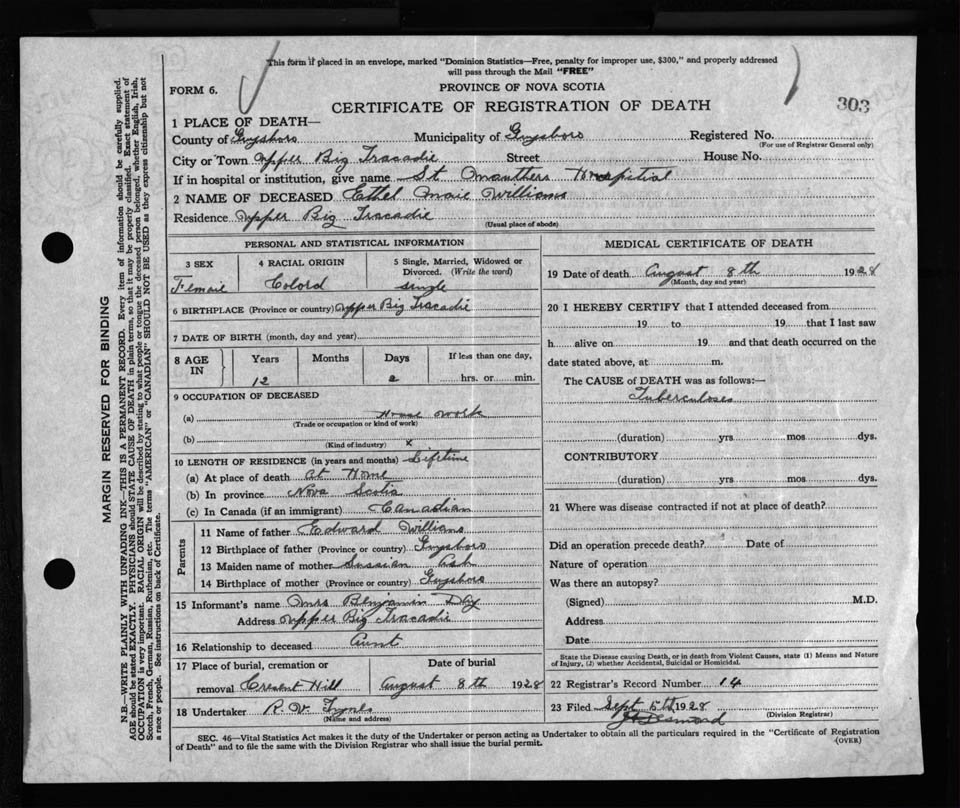 This form if placed in an envelope, marked "Dominion Statistics—Free, penalty for improper use, $300," and properly addressed
will pass through the Mail "FREE"
FORM 6.
PROVINCE OF NOVA SCOTIA
CERTIFICATE OF REGISTRATION OF DEATH
303
1 PLACE OF DEATH—
County of Guysboro Municipality of Guysboro Registered No.
(For use of Registrar General only)
City or Town Upper Big Tracadie Street House No.
If in hospital or institution, give name St Hospital
2 NAME OF DECEASED Ethel Maie Williams
Residence Upper Big Tracadie
(Usual place of abode)
PERSONAL AND STATISTICAL INFORMATION
3 SEX 4 RACIAL ORIGIN 5 Single, Married, Widowed or
Divorced. (Write the word)
Femaie Colord single
6 BIRTHPLACE (Province or country) Upper Big Tracadie
7 DATE OF BIRTH (month, day and year)
8 AGE IN Years Months Days If less than one day,
12 2 hrs. or min.
9 OCCUPATION OF DECEASED
(a) House Work
(Trade or occupation or kind of work)
(b) x
(Kind of industry)
10 LENGTH OF RESIDENCE (in years and months) Lifetime
(a) At place of death At Home
(b) In province Nova Scotia
(c) In Canada (if an immigrant) Canadian
Parents
11 Name of father Edward Williams
12 Birthplace of father (Province or country) Guysboro
13 Maiden name of mother Sussian Ash
14 Birthplace of mother (Province or country) Guysboro
15 Informant's name Mrs Benjamin Day
Address Upper Big Tracadie
16 Relationship to deceased Aunt
17 Place of burial, cremation or Date of burial
removal Cresent Hill August 8th 1928
18 Undertaker R. V. Tynes
(Name and address)
MEDICAL CERTIFICATE OF DEATH
19 Date of death August 8th 1928
(Month, day and year)
20 I HEREBY CERTIFY that I attended deceased from
19 to 19 that I last saw
h alive on 19 and that death occurred on the
date stated above, at m.
The CAUSE of DEATH was as follows:—
Tuberculoses
(duration) yrs mos dys.
CONTRIBUTORY
(duration) yrs mos dys.
21 Where was disease contracted if not at place of death?
Did an operation precede death? Date of
Nature of operation
Was there an autopsy?
(Signed) M.D.
Address
Date
State the Disease causing Death, or in death from Violent Causes, state (1) Means and Nature
of Injury, (2) whether Accidental, Suicidal or Homicidal.
22 Registrar's Record Number 14
23 Filed Sept 5th 1928
Desmond
(Division Registrar)
SEC. 46—Vital Statistics Act makes it the duty of the Undertaker or person acting as Undertaker to obtain all the particulars required in the "Certificate of Registration
of Death" and to file the same with the Division Registrar who shall issue the burial permit.
(OVER)
MARGIN RESERVED FOR BINDING
N.B.—WRITE PLAINLY WITH UNFADING INK—THIS IS A PERMANENT RECORD. Every item of information should be carefully supplied.
AGE should be stated EXACTLY. PHYSICIANS should STATE CAUSE OF DEATH in plain terms, so that it may be properly classified. Exact statement of
OCCUPATION is very important. RACIAL ORIGIN will be described by stating to what people or tongue the deceased person belonged, whether English, Irish,
Scotch, French, German, Russian, Ruthenian, etc. The terms "AMERICAN" or "CANADIAN" SHOULD NOT BE USED as they express citizenship but not
a race or people. See instructions on back of Certificate.